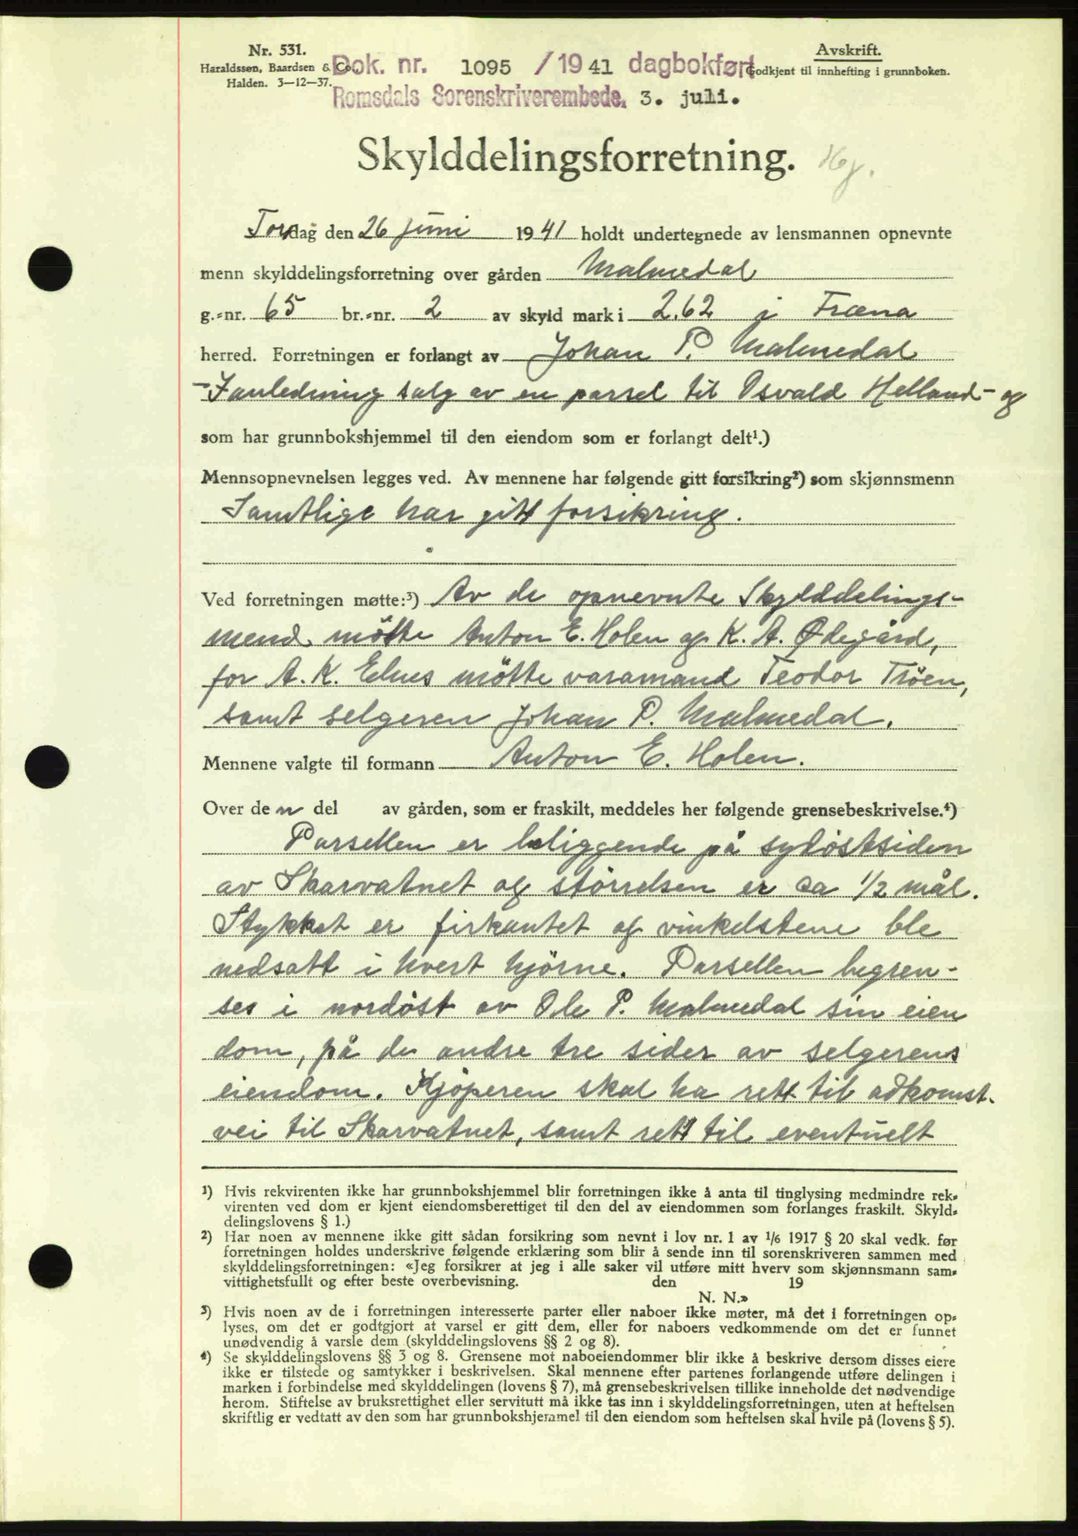 Nr. 531.
Haraldssen, Baardsen & Co.
Halden. 3-12-37.
Avskrift.
Godkjent til innhefting i grunnboken.
Dok. nr. 1095 / 1941 dagbokført
Romsdals Sorenskriverembede. 3. juli.
Skylddelingsforretning.
Torsdag den 26 juni 1941 holdt undertegnede av lensmannen opnevnte
menn skylddelingsforretning over gården Malmedal
g.-nr. 65 br.-nr. 2 av skyld mark i 2.62 i Fræna
herred. Forretningen er forlangt av Johan P. Malmedal
- I anledning salg av en parsel til Osvald Helland - og
som har grunnbokshjemmel til den eiendom som er forlangt delt¹.)
Mennsopnevnelsen legges ved. Av mennene har følgende gitt forsikring²) som skjønnsmenn
Samtlige har gitt forsikring.
Ved forretningen møtte:³) Av de opnevnte Skylddelings-
mend møtte Anton E. Holen og K. A. Ødegård,
for A. K. Elnes møtte varamand Teodor Tröen,
samt selgeren Johan P. Malmedal.
Mennene valgte til formann Anton E. Holen.
Over den del av gården, som er fraskilt, meddeles her følgende grensebeskrivelse.⁴)
Parsellen er beliggende på sydöstsiden
av Skarvatnet og störrelsen er ca 1/2 mål.
Stykket er firkantet og vinkelstene ble
nedsatt i hvert hjörne. Parsellen begren-
ses i nordöst av Ole P. Malmedal sin eien
dom, på de andre tre sider av selgerens
eiendom. Kjöperen skal ha rett til adkomst-
vei til Skarvatnet, samt rett til eventuelt
¹) Hvis rekvirenten ikke har grunnbokshjemmel blir forretningen ikke å anta til tinglysing medmindre rek-
virenten ved dom er kjent eiendomsberettiget til den del av eiendommen som forlanges fraskilt. Skyld-
delingslovens § 1.)
²) Har noen av mennene ikke gitt sådan forsikring som nevnt i lov nr. 1 av 1/6 1917 § 20 skal vedk. før
forretningen holdes underskrive følgende erklæring som blir å sende inn til sorenskriveren sammen med
skylddelingsforretningen: «Jeg forsikrer at jeg i alle saker vil utføre mitt hverv som skjønnsmann sam-
vittighetsfullt og efter beste overbevisning. den 19
N. N.»
³) Hvis noen av de i forretningen interesserte parter eller naboer ikke møter, må det i forretningen op-
lyses, om det er godtgjort at varsel er gitt dem, eller for naboers vedkommende om det er funnet
unødvendig å varsle dem (skylddelingslovens §§ 2 og 8).
⁴) Se skylddelingslovens §§ 3 og 8. Grensene mot naboeiendommer blir ikke å beskrive dersom disses eiere
ikke er tilstede og samtykker i beskrivelsen. Skal mennene efter partenes forlangende utføre delingen i
marken i forbindelse med skylddelingen (lovens § 7), må grensebeskrivelsen tillike inneholde det nødvendige
herom. Stiftelse av bruksrettighet eller servitutt må ikke tas inn i skylddelingsforretningen, uten at heftelsen
skriftlig er vedtatt av den som har grunnbokshjemmel til den eiendom som heftelsen skal hvile på (lovens § 5).